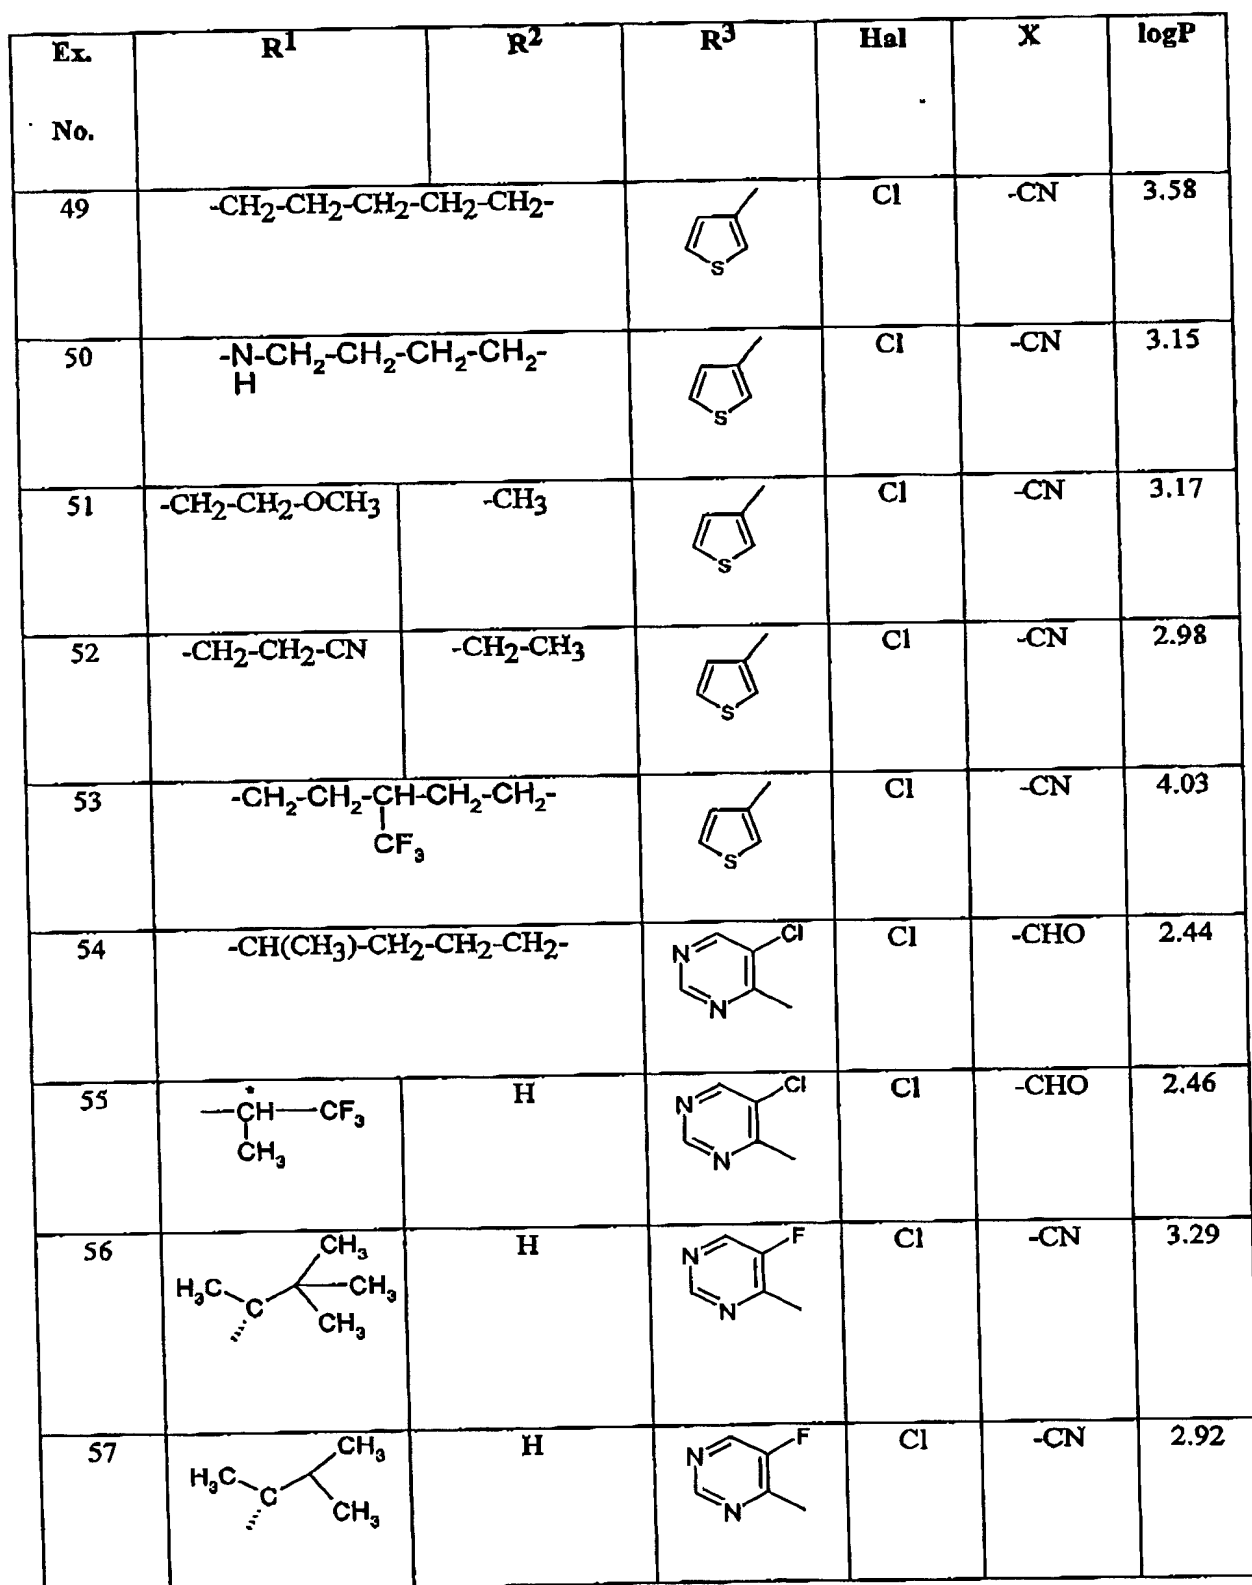 Ex. No. R1 R2 R3 Hal X logP
49 -CH2-CH2-CH2-CH2-CH2- S Cl -CN 3.58
50 -N-CH2-CH2-CH2-CH2- S Cl -CN 3.15
H
51 -CH2-CH2-OCH3 -CH3 S Cl -CN 3.17
52 -CH2-CH2-CN -CH2-CH3 S Cl -CN 2.98
53 -CH2-CH2-CH-CH2-CH2- S Cl -CN 4.03
CF3
54 -CH(CH3)-CH2-CH2-CH2- N N Cl Cl -CHO 2.44
55 * CH CF3 CH3 H N N Cl Cl -CHO 2.46
56 H3C C CH3 CH3 CH3 H N N F Cl -CN 3.29
57 H3C C CH3 CH3 H N N F Cl -CN 2.92